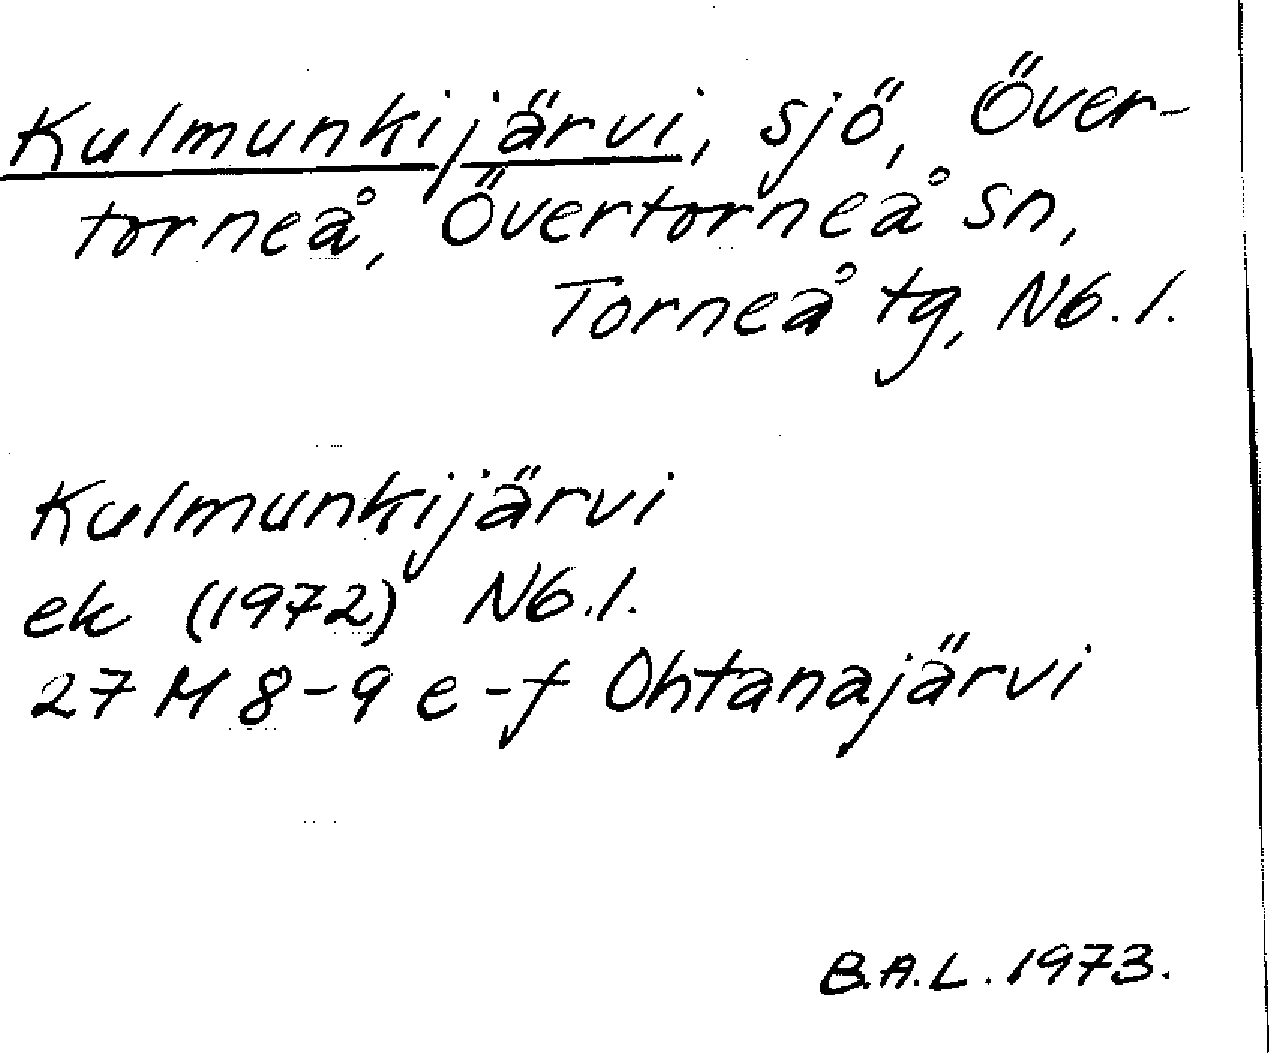 Kulmunkijärvi, sjö, Över-
torneå, Övertorneå sn,
Torneå tg, Nb.l.
Kulmunkijärvi
ek (1972) Nb.l.
27 M 8-9 e-f Ohtanajärvi
B.A.L. 1973.